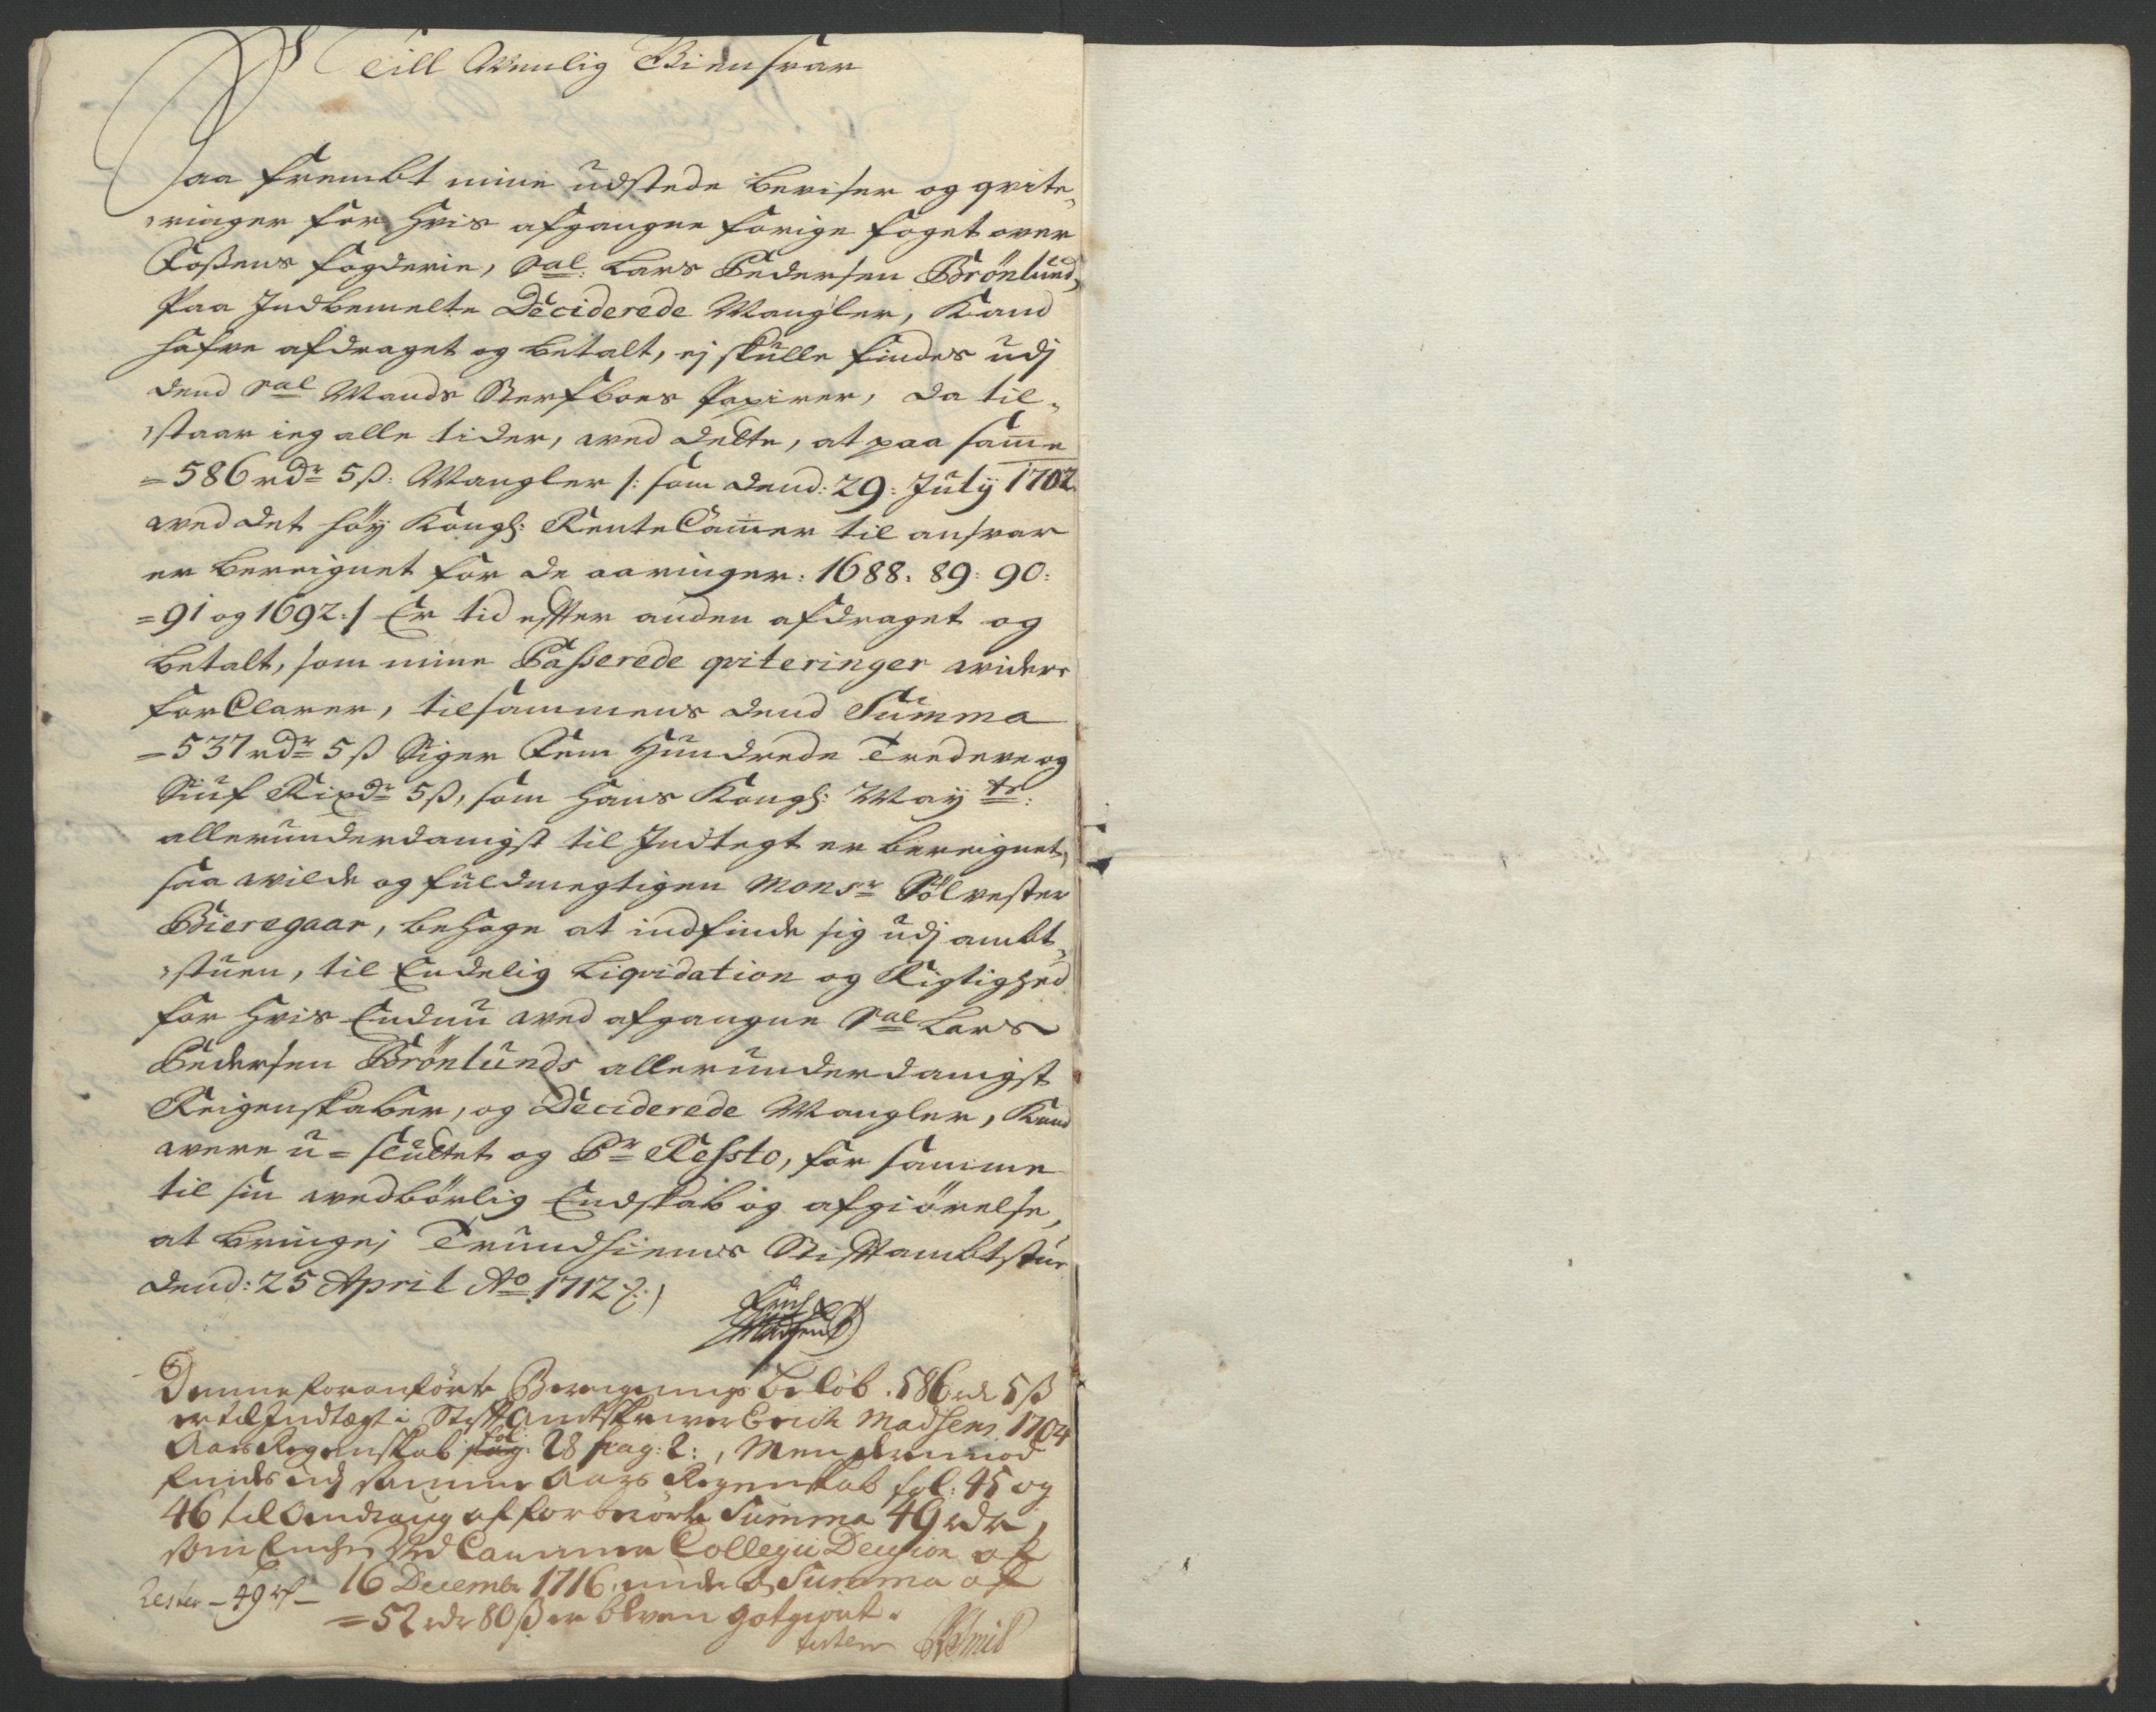 Till Wenlig Giensvar
Saa frembt mine udstede beviser og qvite-
ringer for hvis afgangne forige foget over
Foßens fogderie, Sal: Lars Pedersen Brönlund,
Paa Indbemelte Deciderede Mangler, Kand
hafve afdraget og betalt, ej skulle findes udj
dend Sal Mands Sterfboes Papirer, da til-
staar ieg alle tider, med dette, at paa same
=586 rdr 5 ß: Mangler /: som dend: 29: July 1702
ved det höy Kongl: RenteCamer til ansvar
er bereignet for de aaringer: 1688. 89: 90:
=91 og 1692:/ Er tid effter anden afdraget og
betalt, som mine Passerede qviteringer widere
forClarer, tilsammens dend Summa
=537 rdr 5 ß Siger Fem Hundrede Tredeve og
Siuf Rixdr 5 ß, som Hans Kongl: May tr:
allerunderdanigst til Indtegt er bereignet,
saa wilde og fuldmegtigen Monsr Sölvester
Bieregaar, behage at indfinde sig udj ambt-
stuen, til Endelig Liqvidation og Rigtighed
for hvis Endnu wed afgangne Sal Lars
Pedersen Brönlunds allerunderdanigst
Reigenskaber, og Deciderede Mangler, Kand
were u=sluttet og Pr Ressto, for samme
til sin wedbörlig Endskab og afgiörelse,
at bringe, Trundhiems Stifftambtstue
dend: 25 April Ao 1712
Erich
Madsen
Denne foranförte Beregnings beløb. 586 rdr 5 ß
er til Indtægt i StifftAmtskriver Erich Madsens 1704
Aars Regenskab fol: 28 pag: 2:, Men derimod
findes udj samme Aars Regenskab fol: 45 og
46 til Andrang af forberörte Summa 49 rdr,
som Cammer Collegii Decision af
Rester - 49 rf - 16 Decembr 1716, under Summa af
=52 rdr 80 ß er bleven gotgiort.